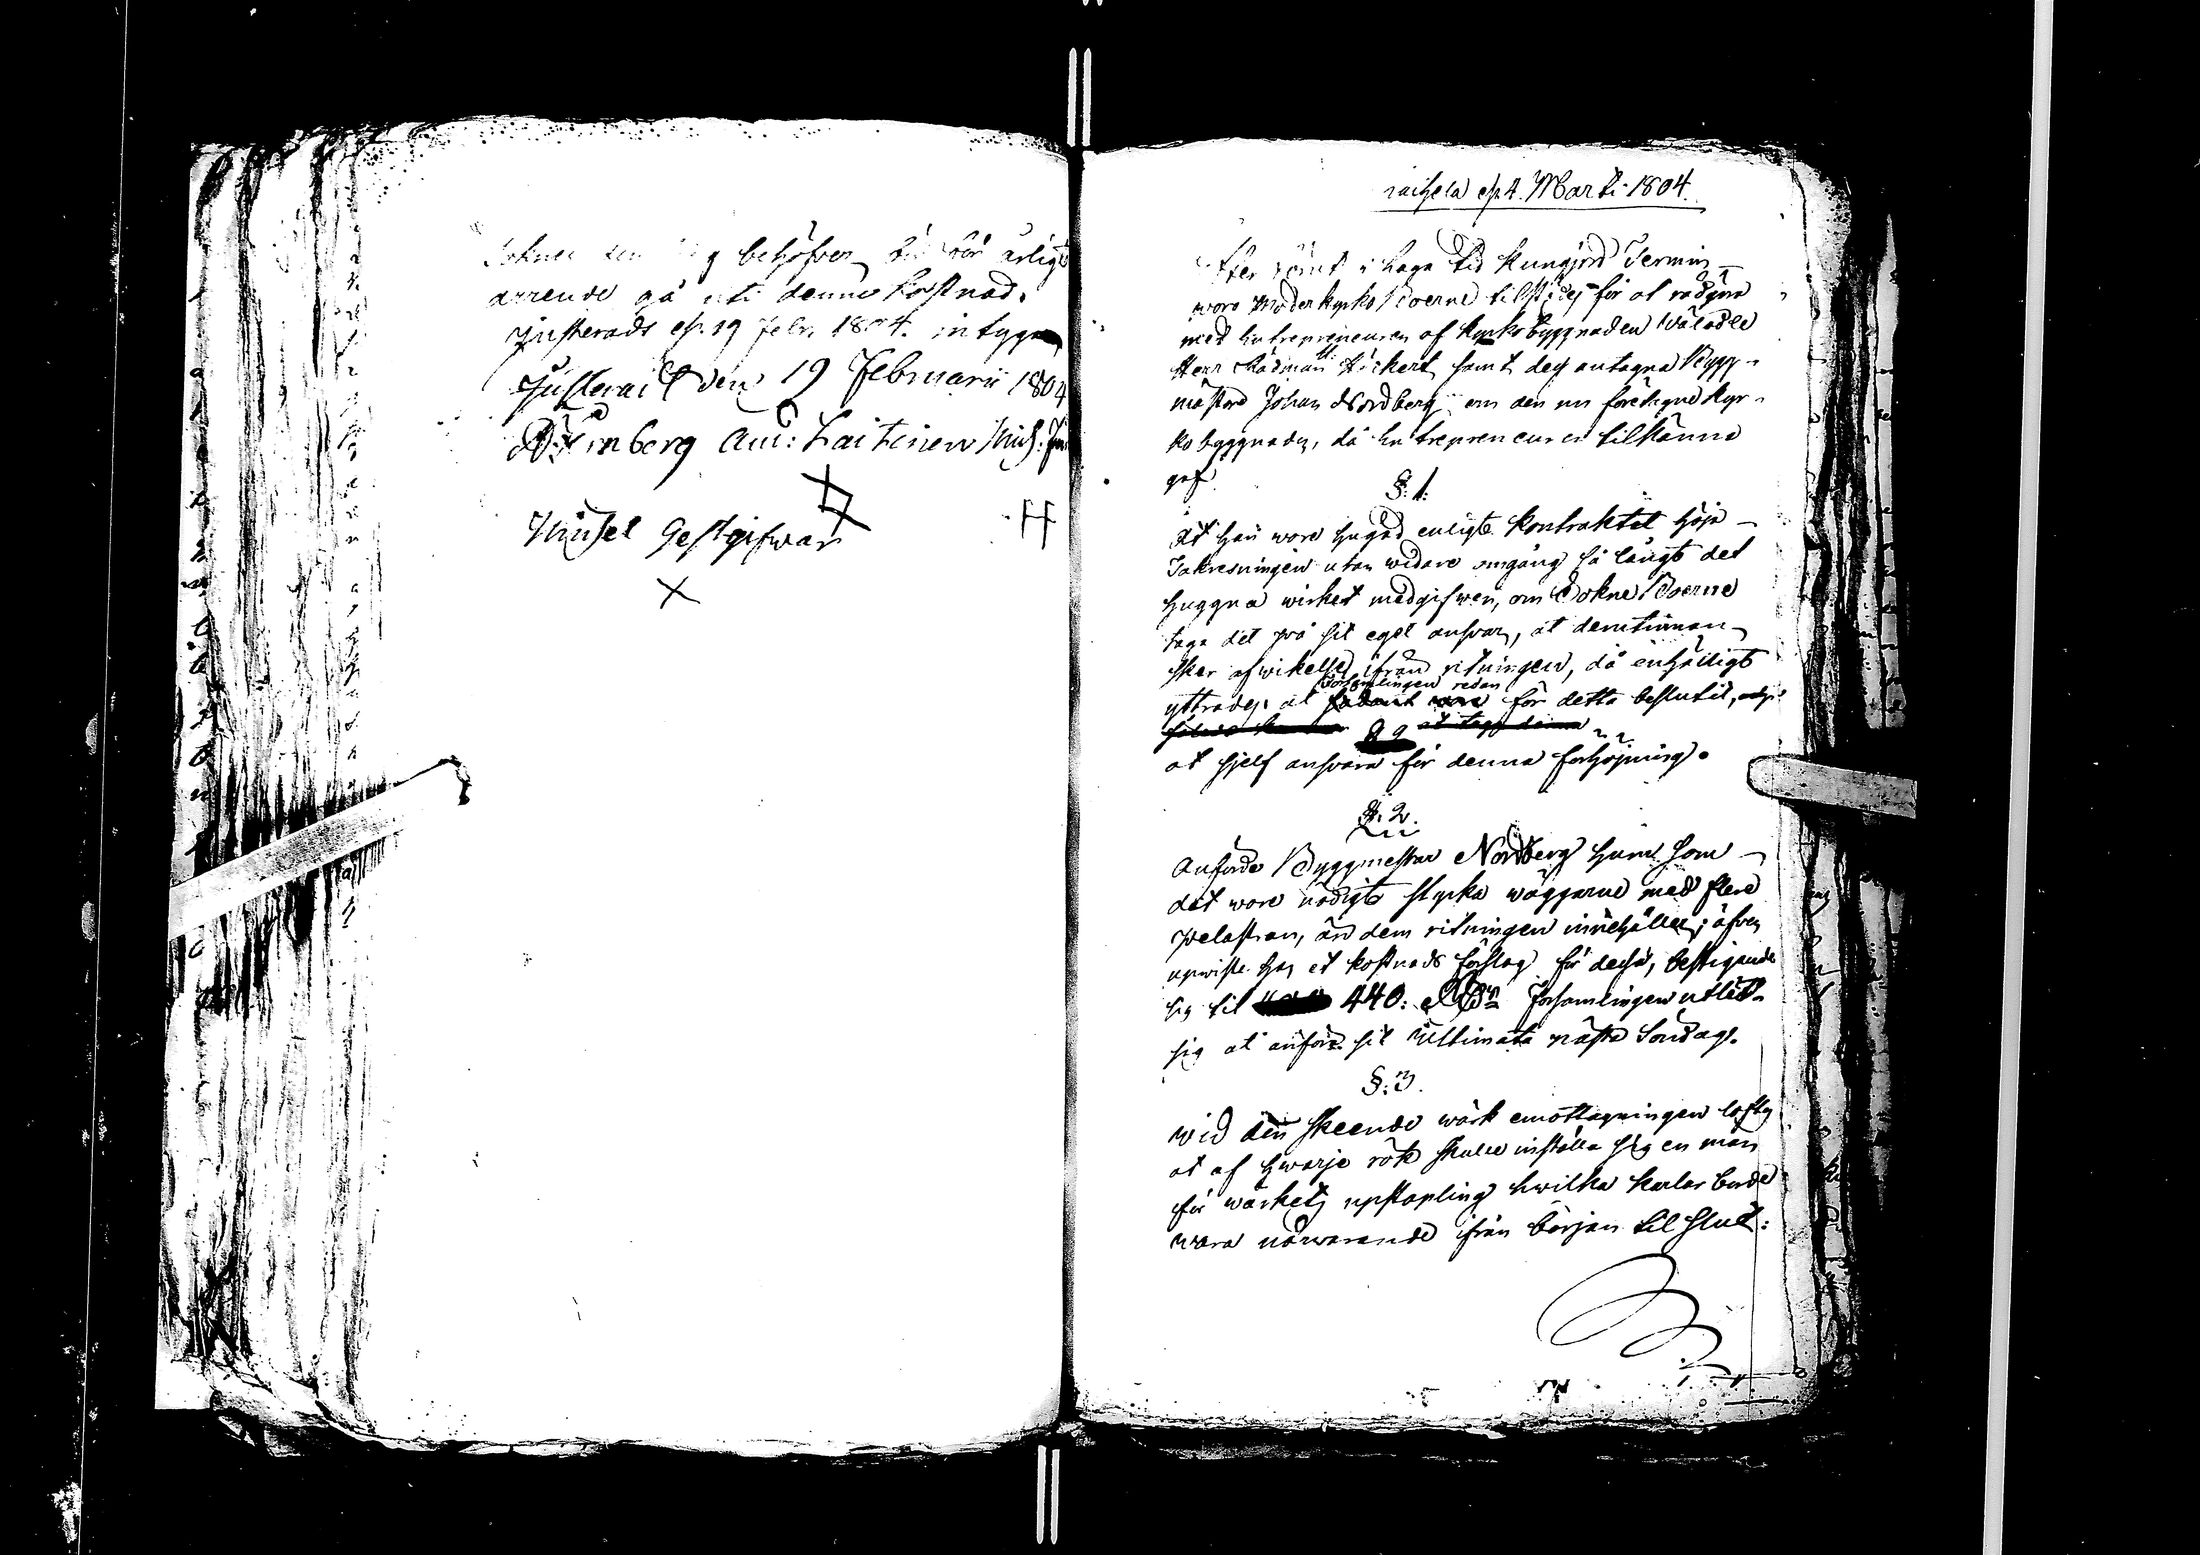 behöfver årligt
arrende gå uti denne kostnad.
Justerads d. 19 Febr. 1804. intygar
Justerait den 19 Februarii 1804
Laitinen
Michel Gestgifwar
d. 4. Marti 1804.
Kungjord Termin
woro Moderkyrko Boerne för at rådgöra
med Entrepreneuren af Kyrkobyggnaden Wäladle
Herr Rådman samt des antagne Bygg-
mästare Johan Nordberg om den nu företagne Kyr-
kobyggnaden, då Entrepreneuren tilkänna
gaf
§. 1.
At han wore hugad enligt Kontraktet höja
Takresningen utan widare omgång så långt det
huggna wirket medgifwer, om Sokne Boerne
taga det på sit eget answar, at derutinnan
sker afwikelse ifrån ritningen, då enhälligt
Församlingen redan
yttrades at för detta beslutit,
at sjelf answara för denna förhöjning.
§. 2.
Anförde Byggmestar Nordberg huru som
det wore nödigt styrka wäggarne med flere
pelastrar, än dem ritningen innehåller; äfven
upwiste han et kostnads förslag för dessa, bestigande
sig til 440: Församlingen utlät
sig at anföra sit Ultimata nästa Söndag.
§. 3.
Wid den skeende wärk emottagningen
at af hwarje rök skulle inställa sig en man
för wärkets upstapling hwilka karlar borde
wara närwarande ifrån början til slut: